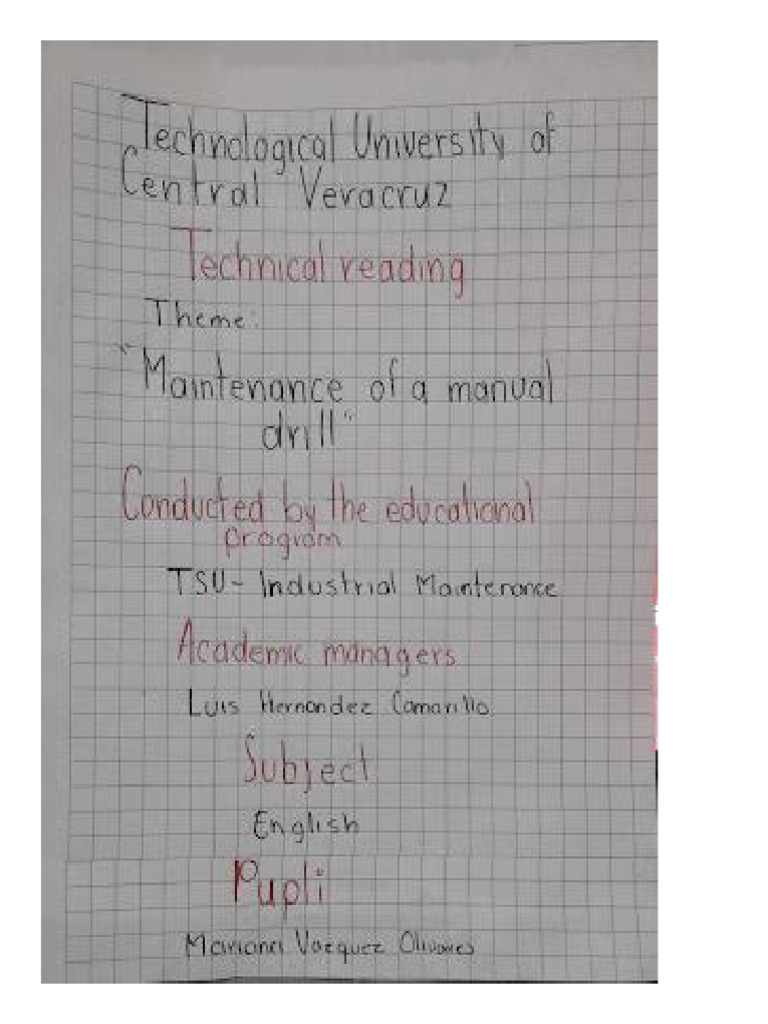 Technological University of
Central Veracruz
Technical reading
Theme:
"Maintenance of a manual
drill"
Conducted by the educational
program
TSU- Industrial Maintenance
Academic managers
Luis Hernandez Camarillo
Subject
English
Pupli
Mariana Vazquez Olivares